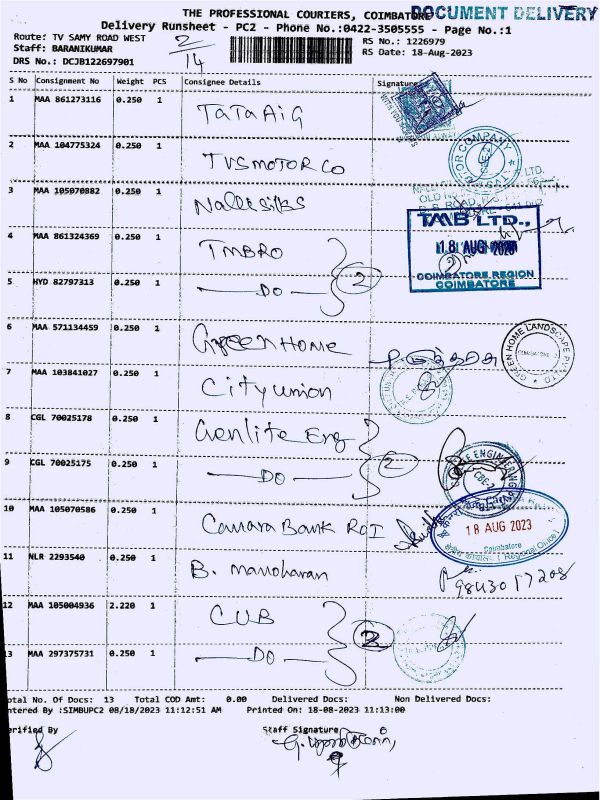 THE PROFESSIONAL COURIERS, COIMBATORE
DOCUMENT DELIVERY
Delivery Runsheet - PC2 - Phone No.:0422-3505555 - Page No.:1
Route: TV SAMY ROAD WEST
RS No.: 1226979
Staff: BARANIKUMAR
RS Date: 18-Aug-2023
DRS No.: DCJB122697901
2/14
S No Consignment No Weight PCS Consignee Details Signature
1 MAA 861273116 0.250 1 TaTa AiG
2 MAA 104775324 0.250 1 TVS MOTOR Co
3 MAA 105070882 0.250 1 Nalli silks
4 MAA 861324369 0.250 1 TMBRO
TMB LTD.,
18 AUG 2023
COIMBATORE REGION
COIMBATORE
5 HYD 82797313 0.250 1 DO 2
6 MAA 571134459 0.250 1 Green HOME
GREEN HOME LANDSCAPE PVT LTD
7 MAA 103841027 0.250 1 City union
8 CGL 70025178 0.250 1 Genlite Eng
9 CGL 70025175 0.250 1 DO 2
10 MAA 105070586 0.250 1 Canara Bank RoI
18 AUG 2023
Coimbatore
Regional Office
11 NLR 2293540 0.250 1 B. manoharan
9843017208
12 MAA 105004936 2.220 1 CUB
13 MAA 297375731 0.250 1 DO 2
Total No. Of Docs: 13 Total COD Amt: 0.00 Delivered Docs: Non Delivered Docs:
Entered By :SIMBUPC2 08/18/2023 11:12:51 AM Printed On: 18-08-2023 11:13:00
Verified By Staff Signature